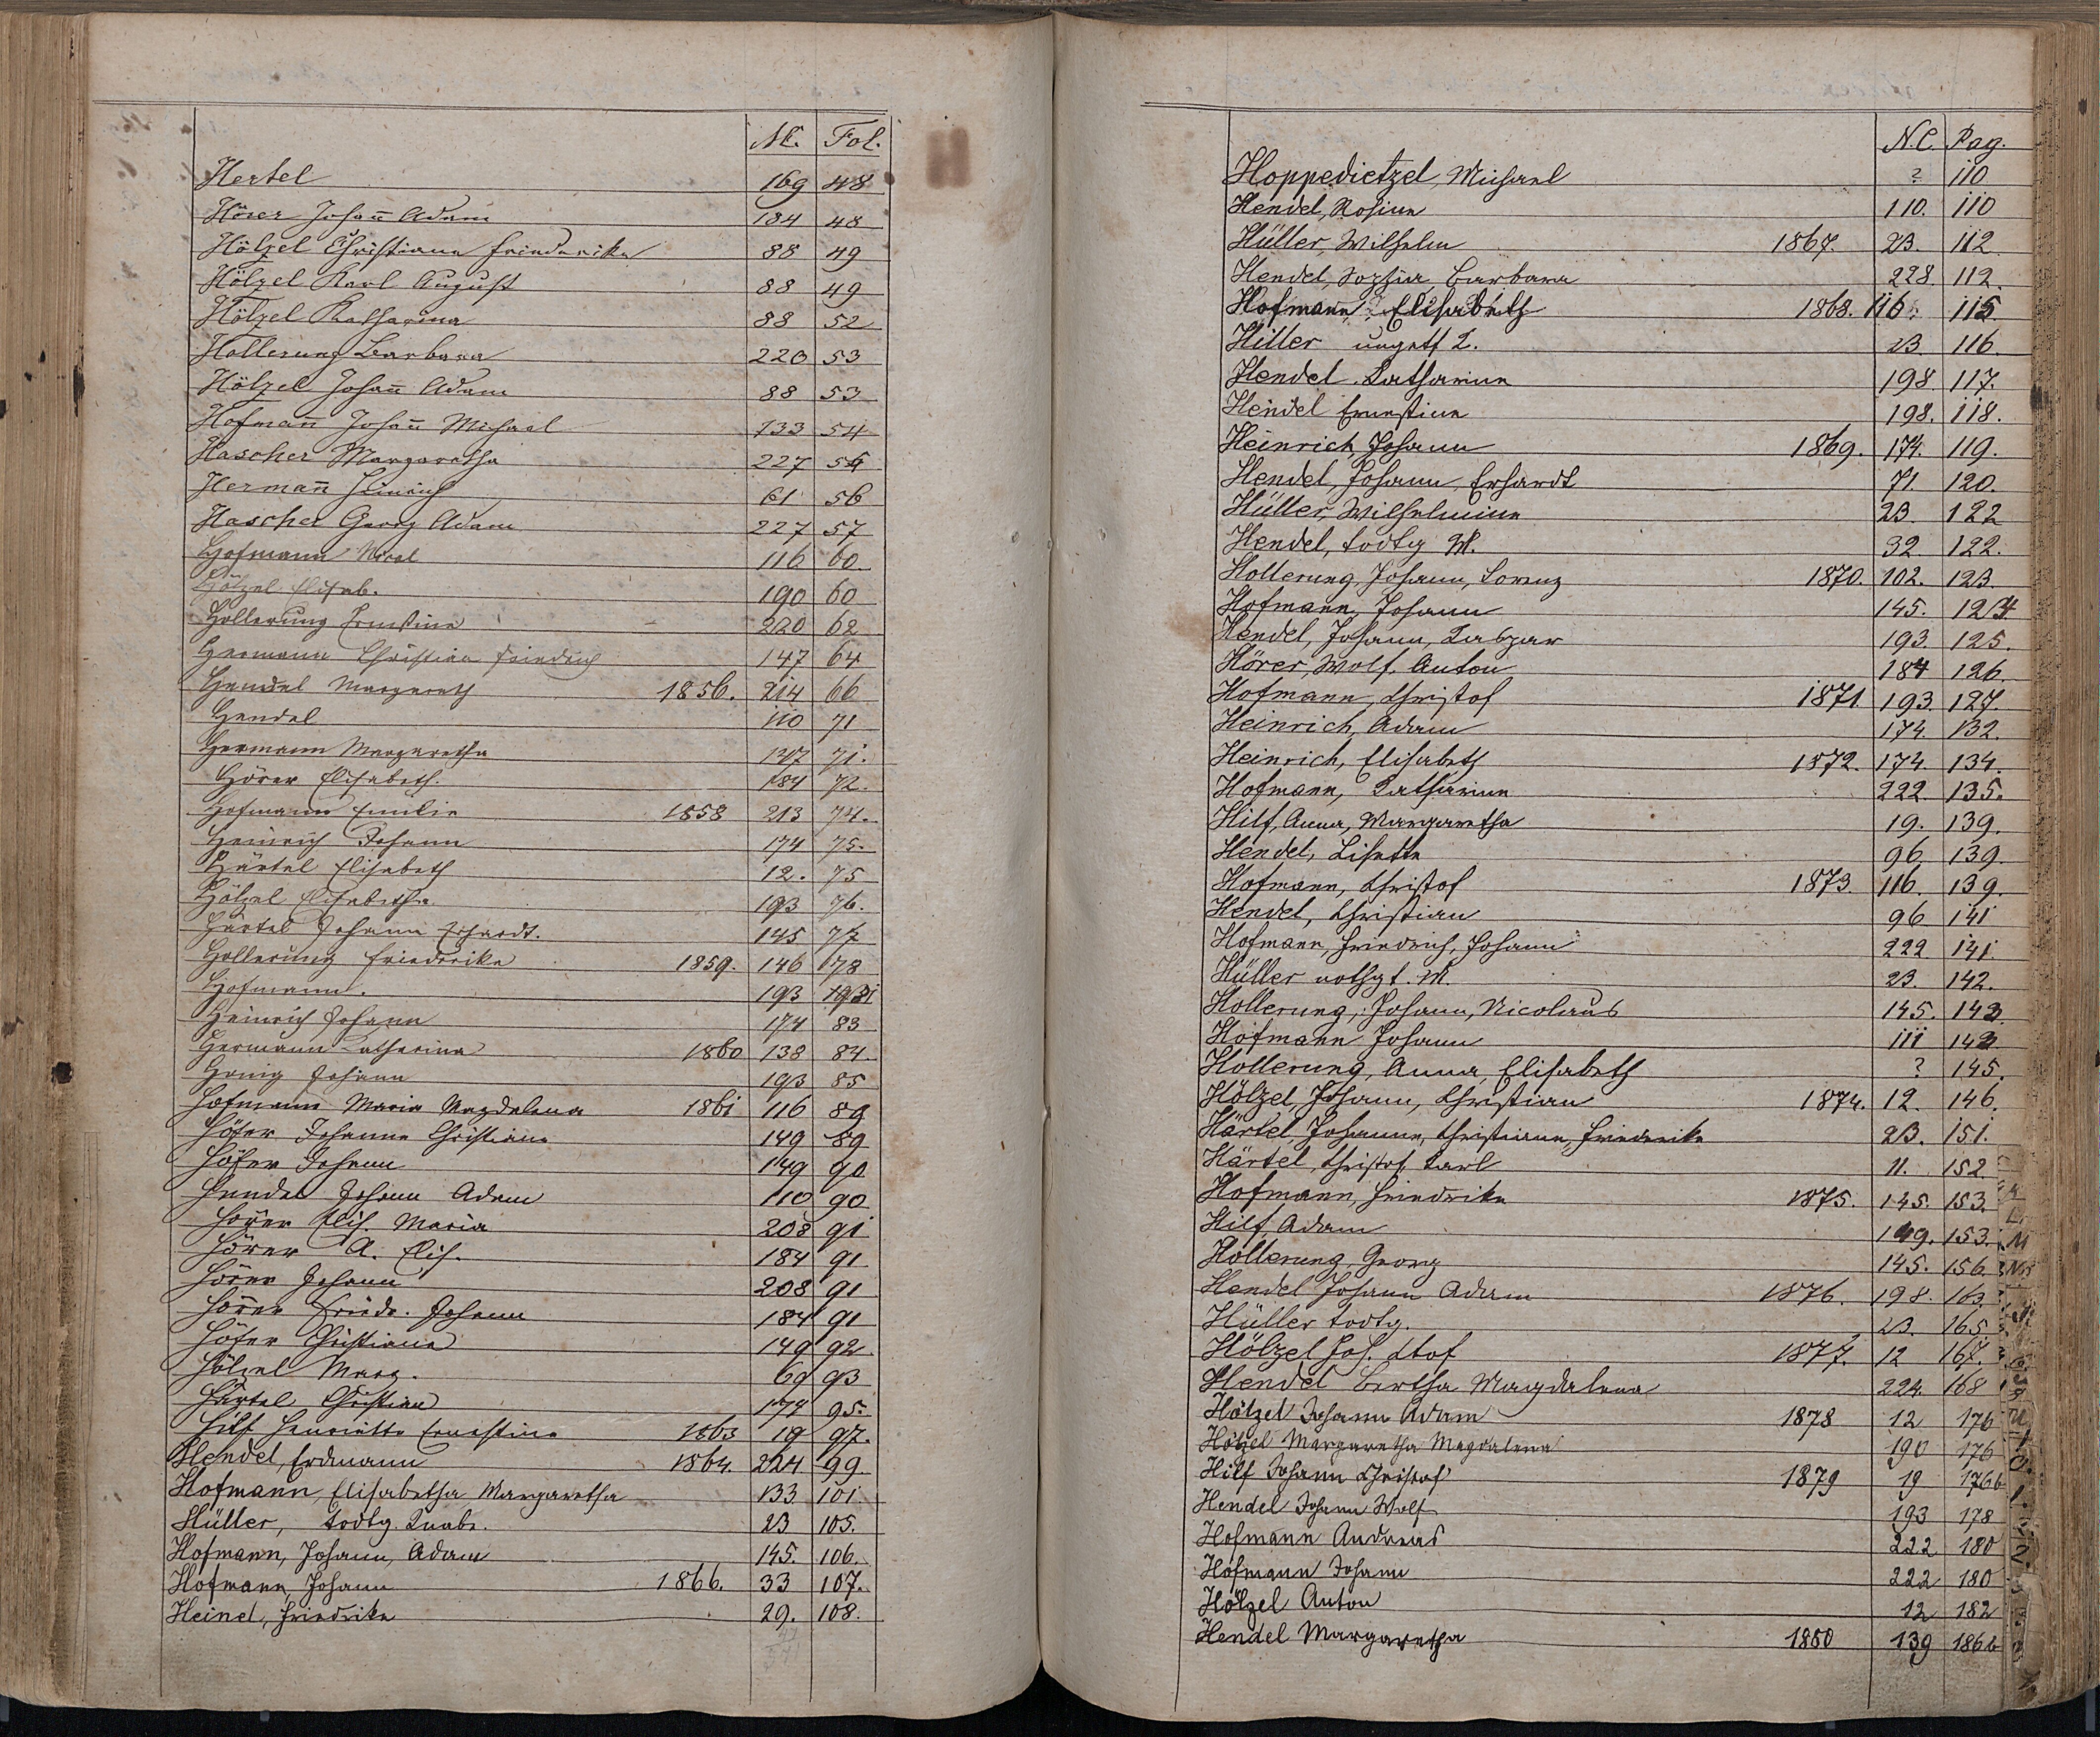 Nc. Fol.
Hertel 169 48
Hörer Johañ Adam 184 48
Hölzel Christiana Friederika 88 49
Hölzel Karl August 88 49
Hölzel Katharina 88 52
Hollerung Barbara 220 53
Hölzel Johañ Adam 88 53
Hofmañ Johañ Michael 133 54
Hascher Margaretha 227 56
Hermañ Heinrich 61 56
Hascher Georg Adam 227 57
Hofmann 116 60
Hölzel Elisab. 190 60
Hollerung Ernstine 220 62
Hermann Christian Friedrich 147 64
Hendel Margareth 1856. 214 66
Hendel 110 71
Hermann Margaretha 147 71.
Hörer Elisabeth. 184 72.
Hofmann Emilie 1858 213 74.
Heinrich Johann 174 75.
Härtel Elisabeth 12. 75
Hölzel Elisabetha 193 76.
Härtel Johann Erhardt. 145 77
Hollerung Friederike 1859. 146 78
Hofmann. 193
Heinrich Johann 174 83
Hermann Catharina 1860 138 84
Hönig Johann 193 85
Hofmann Maria Magdalena 1861 116 89
Höfer Johanna Christiana 149 89
Höfer Johann 149 90
Hendel Johann Adam 110 90
Hörer Elis. Maria 208 91
Hörer A. Elis. 184 91
Hörer Johann 208 91
Hörer Friedr. Johann 184 91
Höfer Christiana 149 92
Hölzel Marg. 69 93
Härtel Christian 174 95.
Hilf Henriette Ernestine 1863 19 97.
Hendel, Erdmann 1864. 224 99.
Hofmann, Elisabetha Margaretha 133 101.
Hüller, todtg. Knabe. 23 105.
Hofmann, Johann, Adam 145. 106.
Hofmann, Johann 1866. 33 107.
Heinel, Friedrike 29. 108.
N.C. Pag.
Hoppedietzel, Michael ? 110
Hendel, Rosine 110. 110
Hüller, Wilhelm 1867. 23. 112
Hendel, Sophia, Barbara 228. 112.
Hofmann Elisabeth 1868. 116. 115
Hüller ungett 2. 23. 116.
Hendel Katharine 198. 117.
Hendel Ernestine 198. 118.
Heinrich, Johann 1869. 174. 119.
Hendel, Johann, Erhardt 71 120.
Hüller, Wilhelmine 23. 122
Hendel, todtg M. 32. 122.
Hollerung, Johann, Lorenz 1870. 102. 123.
Hofmann, Johann 145. 124
Hendel, Johann, Kaspar 193. 125.
Hörer, Wolf, Anton 184 126.
Hofmann, Christof 1871 193. 127.
Heinrich, Adam 174. 132.
Heinrich, Elisabeth 1872. 174. 134.
Hofmann, Katharine 222. 135.
Hilf, Anna, Margaretha 19. 139.
Hendel, Lisette 96. 139.
Hofmann, Christof 1873. 116. 139.
Hendel, Christian 96 141
Hofmann, Friedrich, Johann 222 141.
Hüller nothgt. M. 23. 142.
Hollerung, Johann, Nicolaus 145. 143.
Hofmann Johann 111 143
Hollerung, Anna, Elisabeth ? 145.
Hölzel, Johann, Christian 1874. 12. 146.
Härtel, Johanne, Christiane, Friederike 23. 151.
Härtel, Christof, Karl 11. 152
Hofmann, Friedrike 1875. 145. 153.
Hilf, Adam 149. 153.
Hollerung, Georg 145. 156.
Hendel Johann Adam 1876. 198. 163.
Hüller todtg. 23. 165.
Hölzel Joh. Stof 1877. 12 167.
Hendel Bertha Magdalena 224. 168
Hölzel Johann Adam 1878 12 176
Hölzel Margaretha Magdalena 190 176
Hilf Johann Christof 1879 19 176b
Hendel Johann Wolf 193 178
Hofmann Andreas 222 180
Hofmann Johann 222 180
Hölzel Anton 12 182
Hendel Margaretha 1880 139 186b